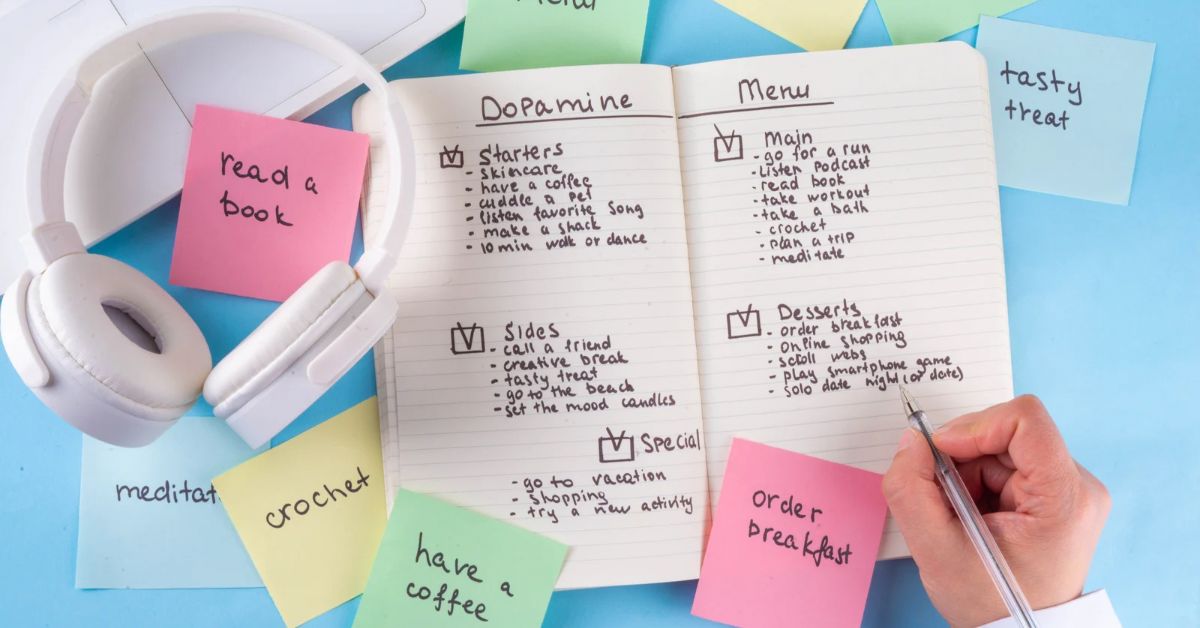 Menu
read a
book
tasty
treat
Dopamine
Starters
- skincare
- have a coffee
- cuddle a pet
- listen favorite song
- make a snack
- 10 min walk or dance
Sides
- call a friend
- creative break
- tasty treat
- go to the beach
- set the mood candles
Special
- go to vacation
- shopping
- try a new activity
Menu
Main
- go for a run
- Listen Podcast
- read book
- take workout
- take a bath
- crochet
- plan a trip
- meditate
Desserts
- order breakfast
- online shopping
- scroll webs
- play smartphone game
- solo date night (or date)
meditat
crochet
have a
coffee
order
breakfast